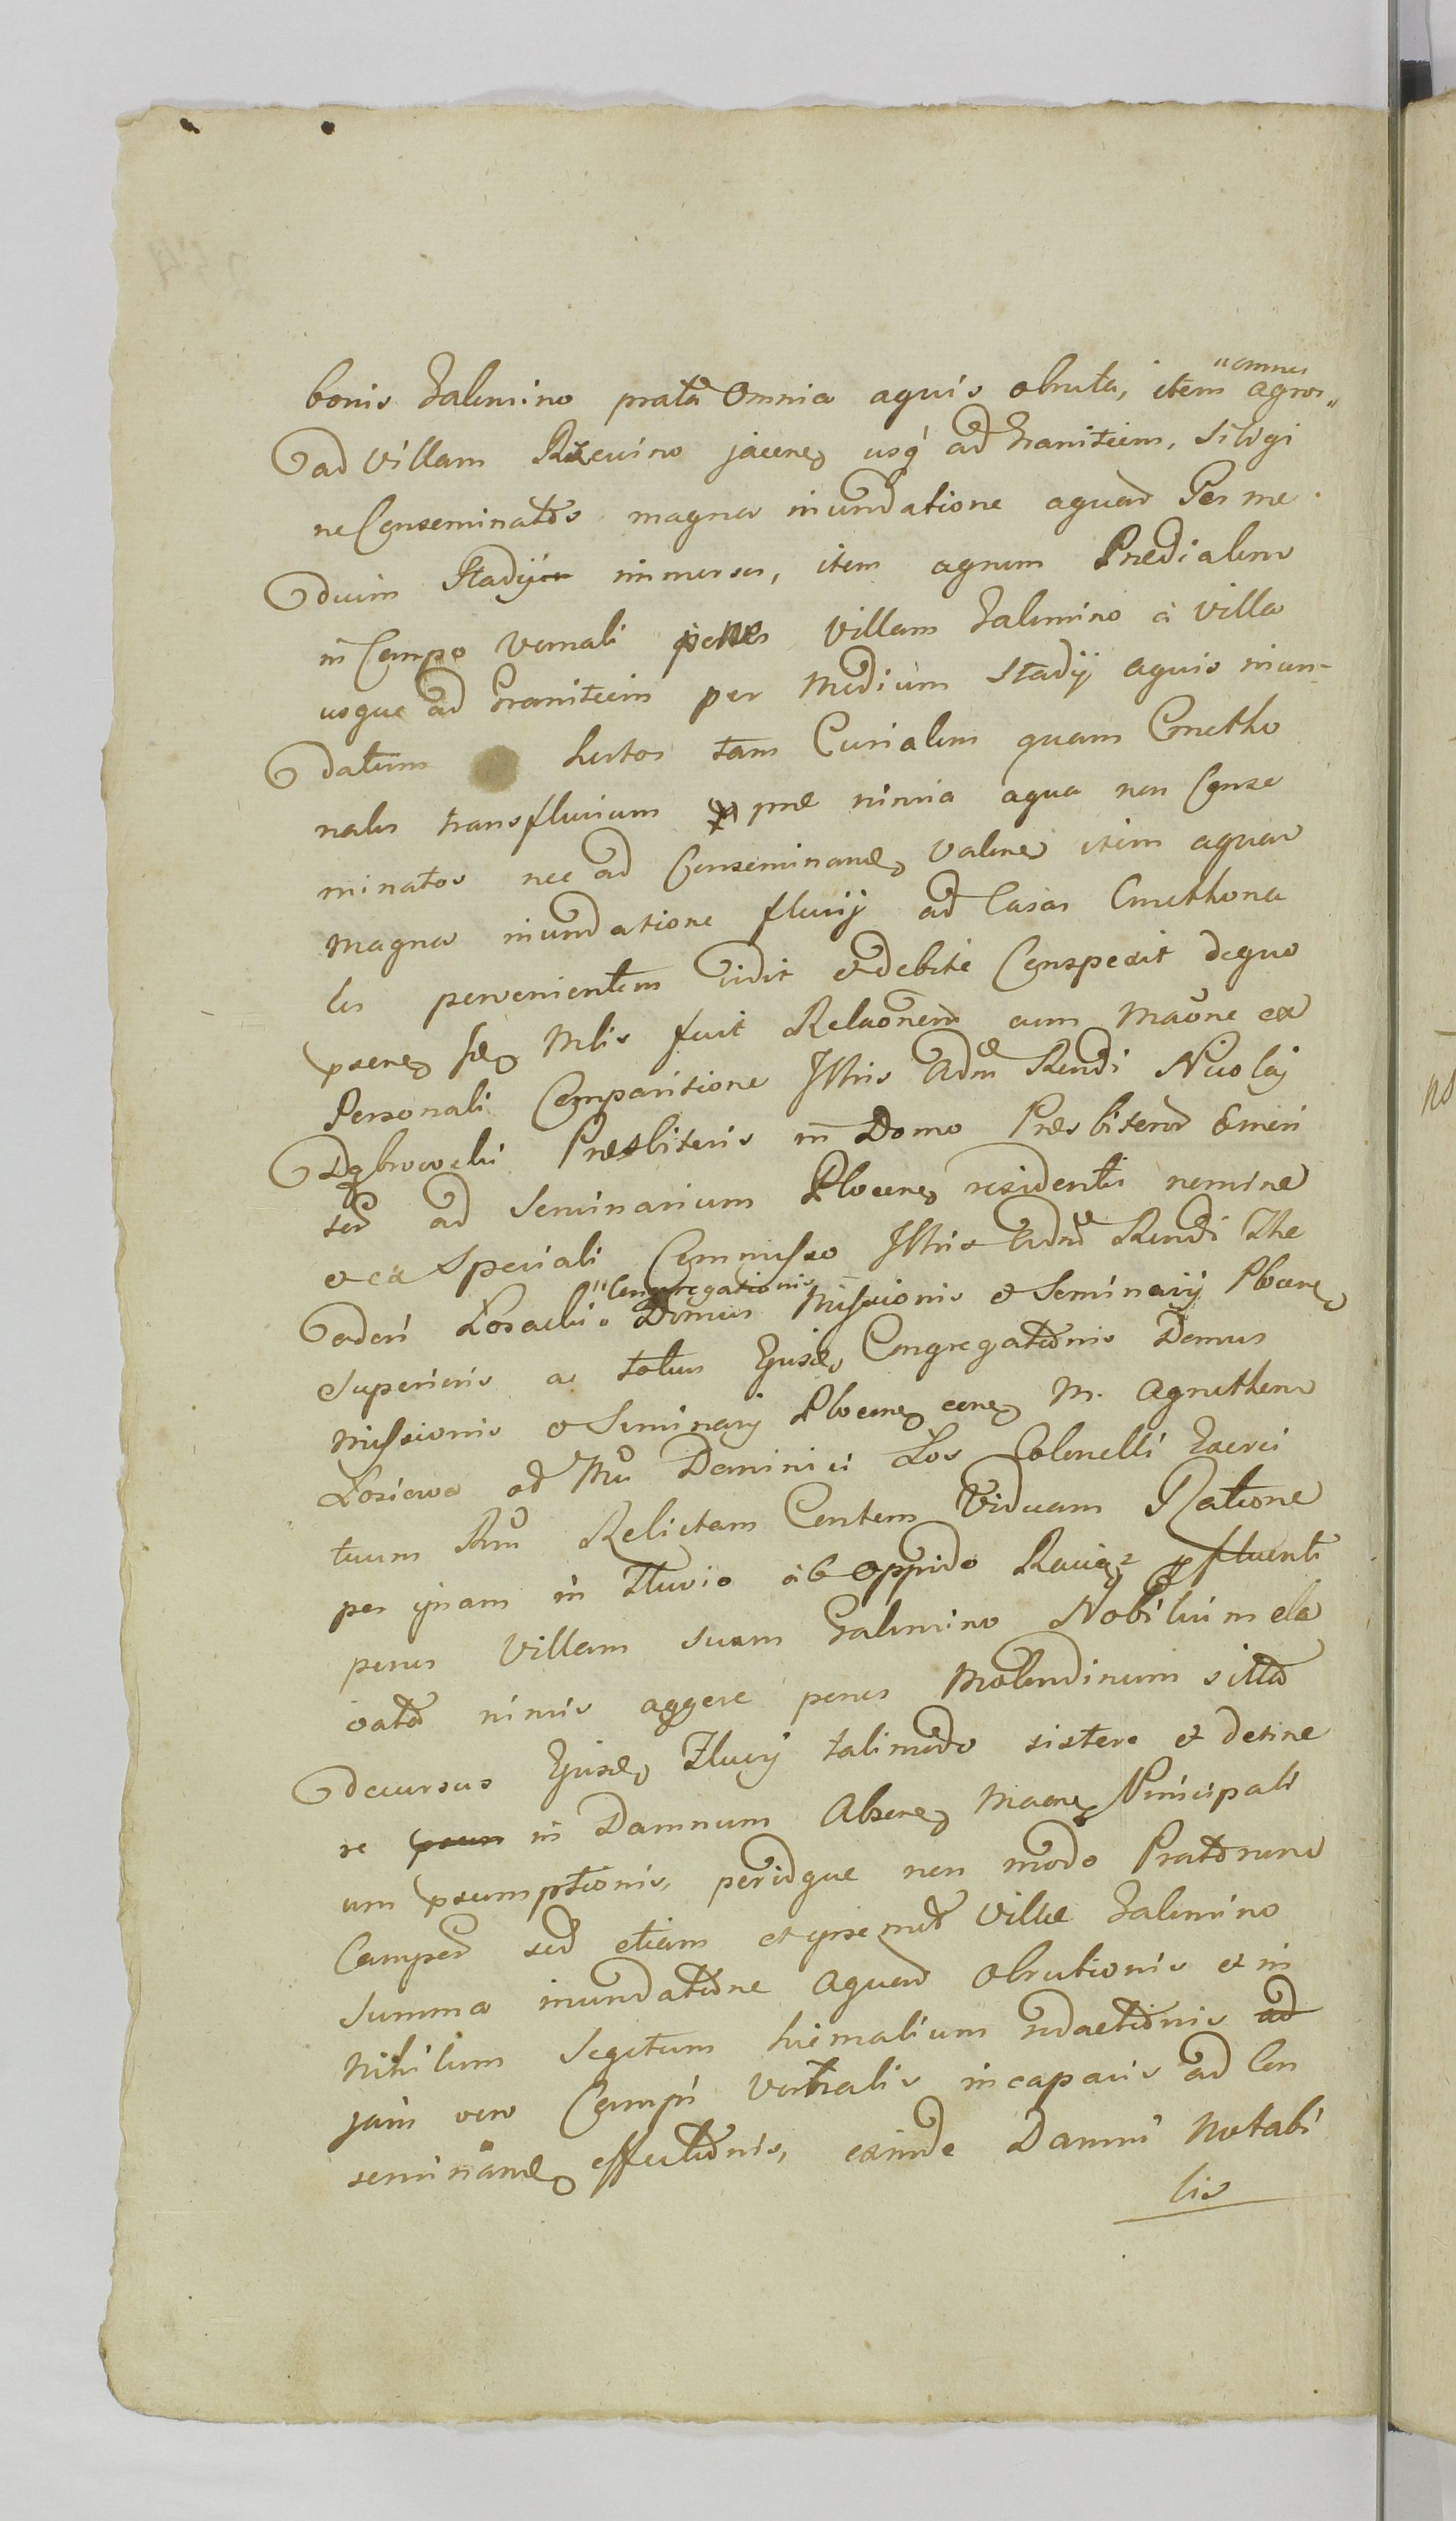 bonis Galmino prata Omnia aquis obruta, item "omnes agros"
ad Villam Rzewino jacene usq ad Graniteem, siligi
ne Conseminatos magna inundatione aquar Per me
dium Stadij immersos, item agrum Predialem
in Campo Vernali penes Villam Galmino à villa
usque ad Graniteem per Medium Stadij aquis inun-
datum hortos tam Curialem quam Cmetho
nales transfluvium prae nimia aqua non Conse
minatos nec ad Conseminand valere item aquar
magna inundatione fluvij ad Casas Cmethona
les pervenientem vidit et debite Conspexit de quo
Mlis fuit Relaonem cum Maone ex
Personali Comparitione Illris Adm Rendi Nicolaj
Dąbrowski Presbiteris in Domo Presbiteror Emeri
tor ad Seminarium Plocen residentis nomine
et ex Speciali Commisso Illris Adm Rendi The
odori Losacki "Congregationis" Domus Missionis et Seminarij Plocen
Superioris ac totius Ejusd Congregationis Domus
Missionis et Seminarij Plocen M. Agnethem
Losiowa od Mci Dominici Los Colonelli Exerci
tuum Relictam Contem Viduam Ratione
per ipsam in Fluvio ab Oppido Raciąz fluenti
penes Villam suam Galmino Nobilium ela
vato nimis aggere penes Molendinum sitto
decursus Ejusd Fluvij talimodo sistere et detine
re in Damnum Absen Principali
um psumptionis, peridque non modo Pratorum
Campor sed etiam et ipsemet Villae Galmino
summa inundatione Aquar Obrutionis et in
Nihilum Segetum hiemalium redactionis ad
jam vero Campi Vernalis incapacis ad Con
seminand effectionis, exinde Damni Notabi
lis